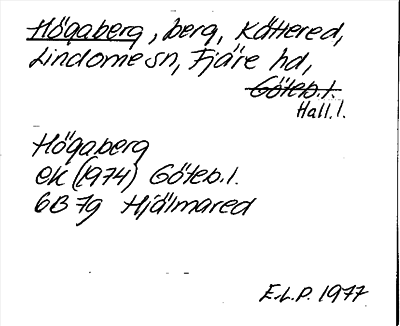 Högaberg, berg, Kättered,
Lindome sn, Fjäre hd,
Göteb.l.
Hall.l.
Högaberg
ek (1974) Göteb.l.
6B 7g Hjälmared
E.L.P. 1977